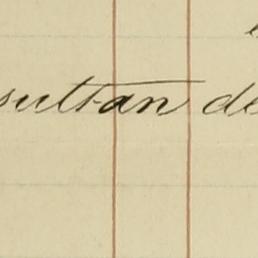 sultan de